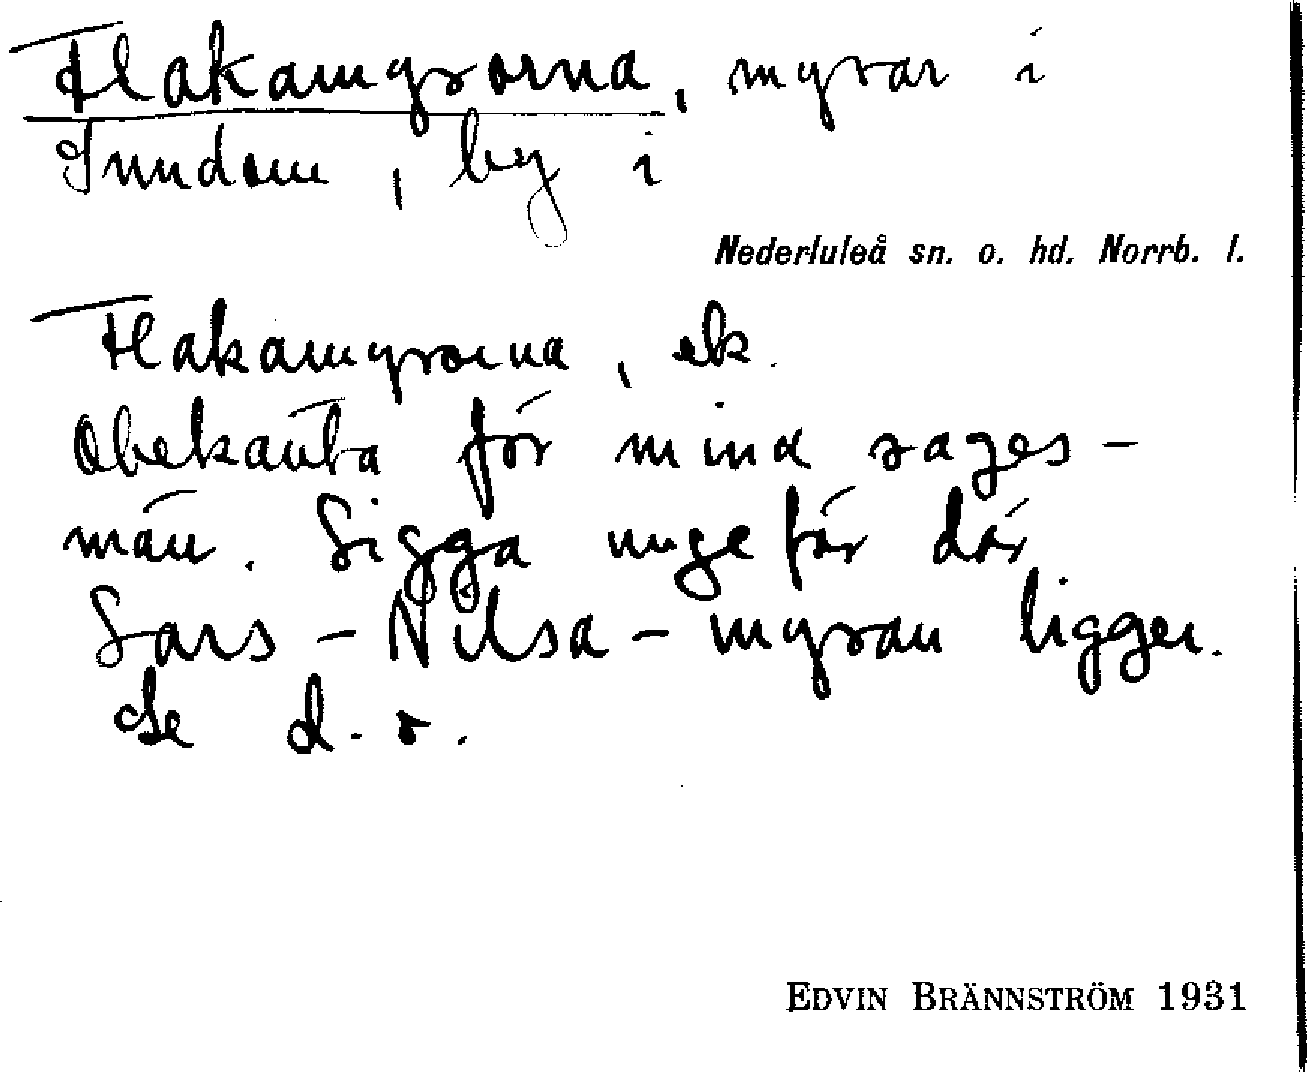 Flakamyrorna, myrar i
Sundom, by i
Nederluleå sn. o. hd. Norrb. l.
Flakamyrorna, ek.
Obekanta för mina sages-
män. Ligga ungefär där
Lars-Nilsa-myran ligger.
Se d. o.
EDVIN BRÄNNSTRÖM 1931